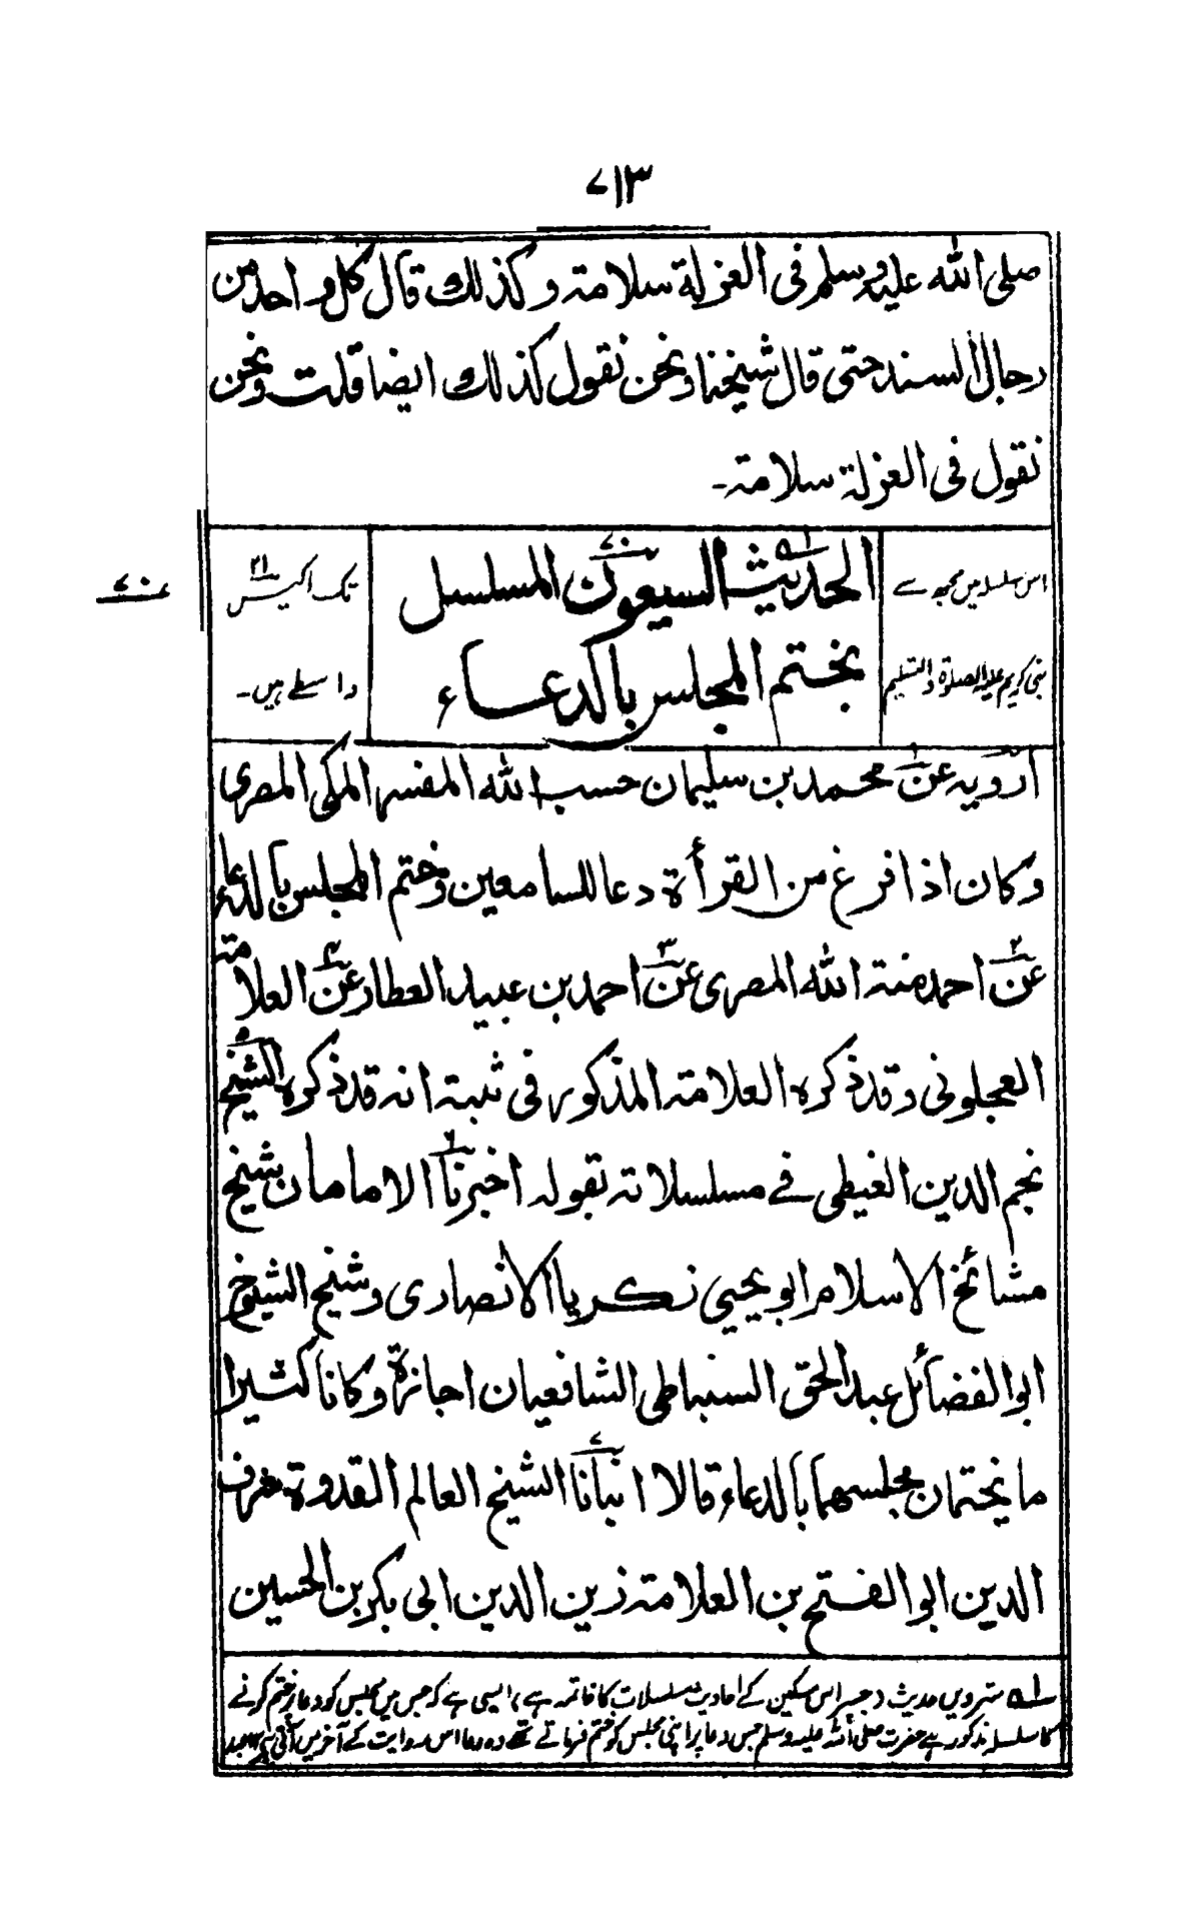 ۷۱۳
صلی الله علیه وسلم فی العزلة سلامة وکذلك قال کل واحد من
رجال السند حتی قال شیخنا ونحن نقول کذلك ایضا قلت ونحن
نقول فی العزلة سلامة۔
الحدیث السبعون المسلسل
بختم المجلس بالدعاء
اس سلسلہ میں مجھ سے
نبی کریم علیہ الصلوۃ والتسلیم
تک اکیس ۲۱
واسطے ہیں۔
۷۰
ارویه عن محمد بن سلیمان حسب الله المفسر المکی المصری
وکان اذا فرغ من القرأة دعا للسامعین وختم المجلس بالدعاء
عن احمد منة الله المصری عن احمد بن عبید العطار عن العلامة
العجلونی وقد ذکره العلامة المذکور فی ثبته انه قد ذکره الشیخ
نجم الدین الغیطی فے مسلسلاته بقوله اخبرنا الامامان شیخ
مشائخ الاسلام ابو یحیی زکریا الانصاری وشیخ الشیوخ
ابو الفضائل عبد الحق السنباطی الشافعیان اجازة وکانا کثیرا
ما یختمان مجلسهما بالدعاء قالا انبأنا الشیخ العالم القدوة شرف
الدین ابو الفتح بن العلامة زین الدین ابی بکر بن الحسین
۱ه سترویں حدیث جس پر اس مسکین کے احادیث مسلسلات کا خاتمہ ہے، ایسی ہے کہ جس میں مجلس کو دعا پر ختم کرنے
کا سلسلہ مذکور ہے حضرت صلی الله علیه وسلم جس دعا پر اپنی مجلس کو ختم فرماتے تھے وہ دعا اس روایت کے آخر میں آتی ہے ۱۲